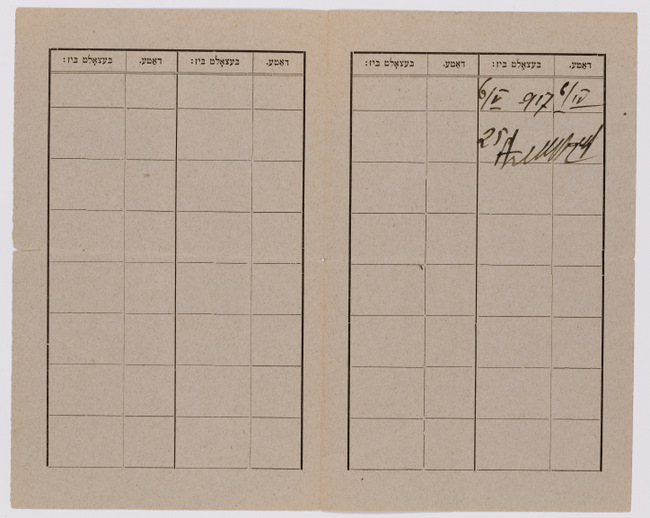 דאַטע. בעצאָלט ביז: דאַטע. בעצאָלט ביז:
6/IV 917 6/V
25
דאַטע. בעצאָלט ביז: דאַטע. בעצאָלט ביז: